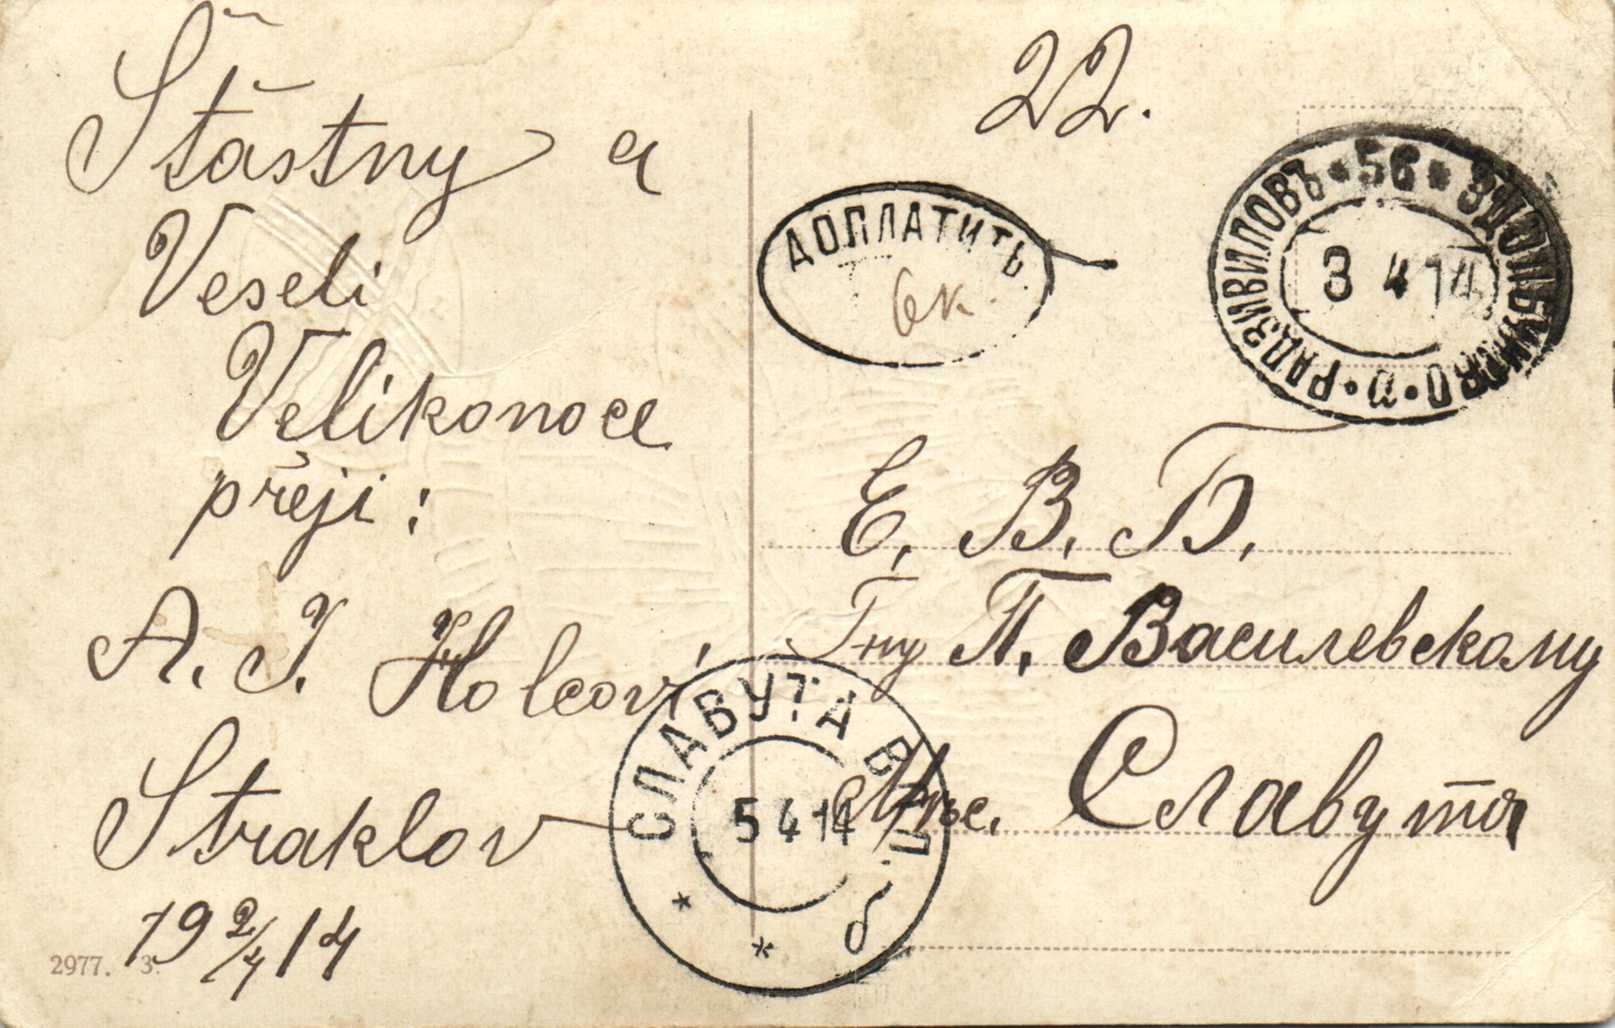 Šťastny a
Veseli
Velikonoce
přeji:
A. J. Holcovi,
Straklov
19 2/4 14
2977. 3.
22.
ДОПЛАТИТЬ
6к.
РАДЗИВИЛОВЪ * 56 * ЗДОЛБУНОВО
3 4 14
Е. В. Б.
Г-ну П. Василевскому
Мѣс. Славута
СЛАВУТА ВОЛ.
5 4 14
б